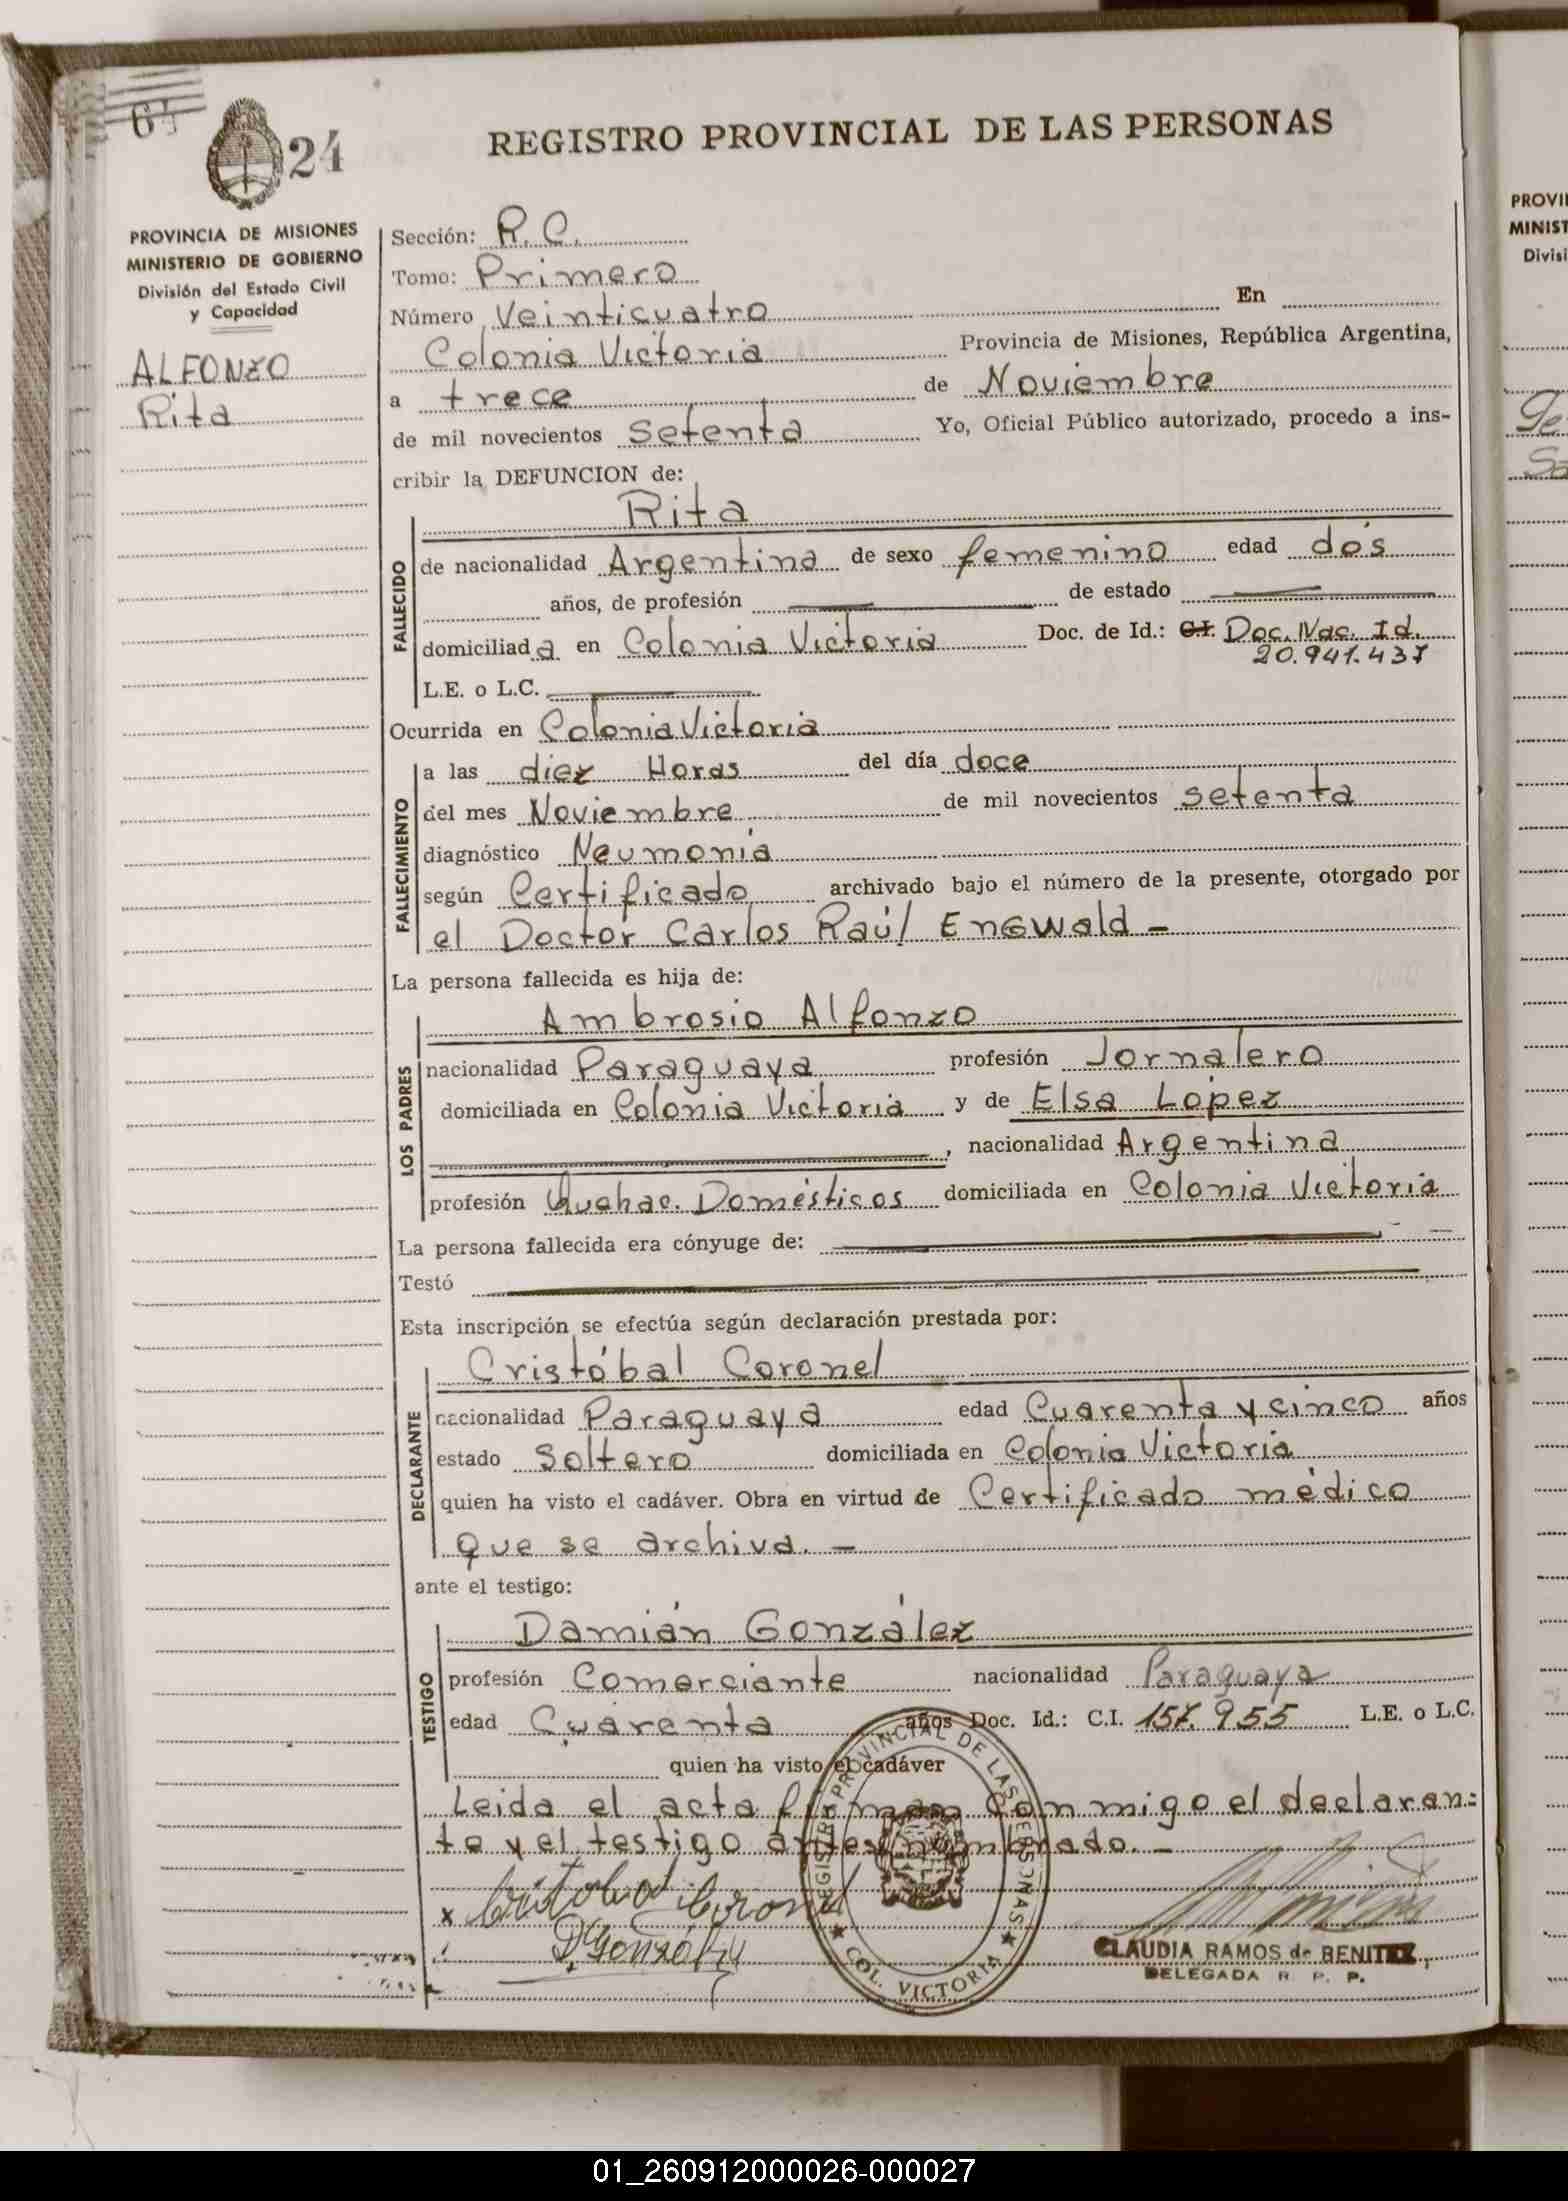 64
24
REGISTRO PROVINCIAL DE LAS PERSONAS
PROVINCIA DE MISIONES
MINISTERIO DE GOBIERNO
División del Estado Civil
y Capacidad
ALFONZO
Rita
Sección: R. C.
Tomo: Primero
Número Veinticuatro En
Colonia Victoria Provincia de Misiones, República Argentina,
a trece de Noviembre
de mil novecientos Setenta Yo, Oficial Público autorizado, procedo a ins-
cribir la DEFUNCION de:
FALLECIDO
Rita
de nacionalidad Argentina de sexo femenino edad dos
años, de profesión de estado
domiciliad a en Colonia Victoria Doc. de Id.: C.I. Doc. Nac. Id.
20.941.437
L.E. o L.C.
Ocurrida en Colonia Victoria
FALLECIMIENTO
a las diez Horas del día doce
del mes Noviembre de mil novecientos setenta
diagnóstico Neumonia
según Certificado archivado bajo el número de la presente, otorgado por
el Doctor Carlos Raúl Engwald -
La persona fallecida es hija de:
LOS PADRES
Ambrosio Alfonzo
nacionalidad Paraguaya profesión Jornalero
domiciliada en Colonia Victoria y de Elsa López
, nacionalidad Argentina
profesión Quehac. Domésticos domiciliada en Colonia Victoria
La persona fallecida era cónyuge de:
Testó
Esta inscripción se efectúa según declaración prestada por:
DECLARANTE
Cristóbal Coronel
nacionalidad Paraguaya edad Cuarenta y cinco años
estado Soltero domiciliada en Colonia Victoria
quien ha visto el cadáver. Obra en virtud de Certificado médico
que se archiva. -
ante el testigo:
TESTIGO
Damián González
profesión Comerciante nacionalidad Paraguaya
edad Cuarenta años Doc. Id.: C.I. 157.955 L.E. o L.C.
quien ha visto el cadáver
Leida el acta firman conmigo el declaran=
te y el testigo antes nombrado. -
x Cristobal Coronel
D. Gonzalez
REGISTRO PROVINCIAL DE LAS PERSONAS
COL. VICTORIA
CLAUDIA RAMOS de BENITEZ
DELEGADA R. P. P.
PROVI
MINIST
Divisi
01_260912000026-000027